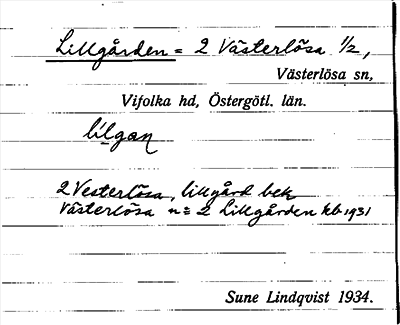 Lillgården = 2 Västerlösa 1/2,
Västerlösa sn,
Vifolka hd, Östergötl. län.
lílgan
2 Vesterlösa, lillgård bek
Västerlösa n = 2 Lillgården kb 1931
Sune Lindqvist 1934.